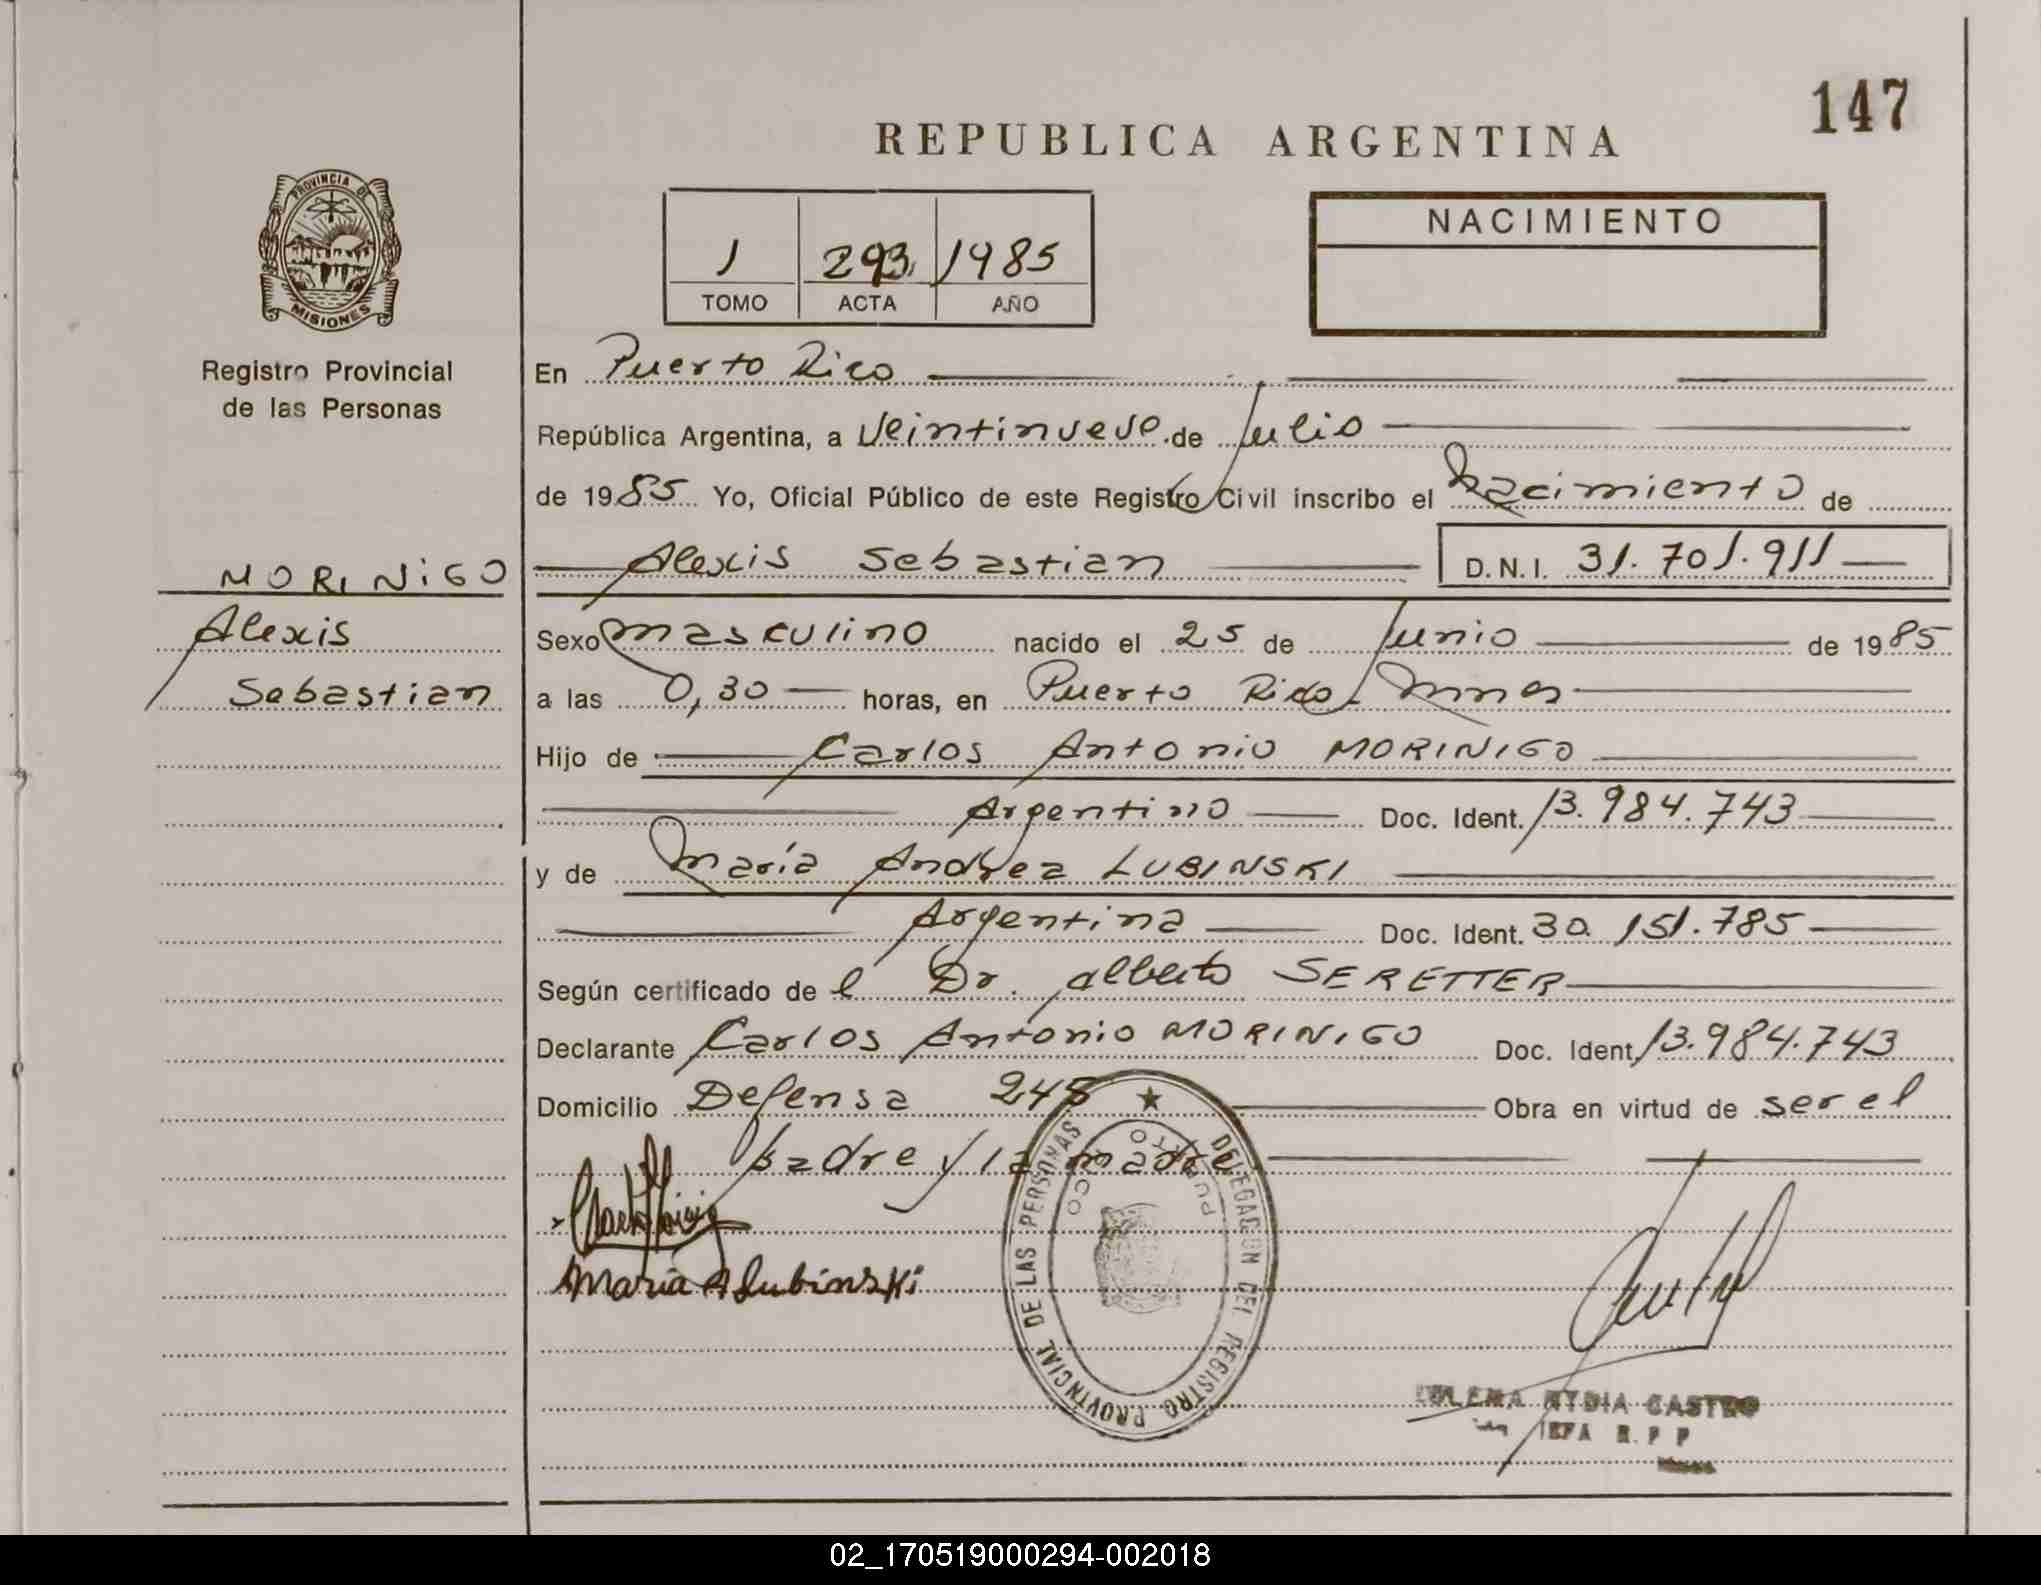 147
REPUBLICA ARGENTINA
PROVINCIA DE
MISIONES
Registro Provincial
de las Personas
1 293 1985
TOMO ACTA AÑO
NACIMIENTO
En Puerto Rico
República Argentina, a Veintinueve de Julio
de 1985 Yo, Oficial Público de este Registro Civil inscribo el Nacimiento de
MORINIGO
Alexis
Sebastian
Alexis Sebastian D.N.I. 31.701.911
Sexo masculino nacido el 25 de Junio de 1985
a las 0,30 horas, en Puerto Rico Mnes
Hijo de Carlos Antonio MORINIGO
Argentino Doc. Ident. 13.984.743
y de María Andrea LUBINSKI
Argentina Doc. Ident. 30.151.785
Según certificado de l Dr. Alberto SERETTER
Declarante Carlos Antonio MORINIGO Doc. Ident. 13.984.743
Domicilio Defensa 248 Obra en virtud de ser el
padre y la madre
Maria A Lubinski
DELEGACION DEL REGISTRO PROVINCIAL DE LAS PERSONAS
PUERTO RICO
NYDIA CASTRO
R.P.P
02_170519000294-002018